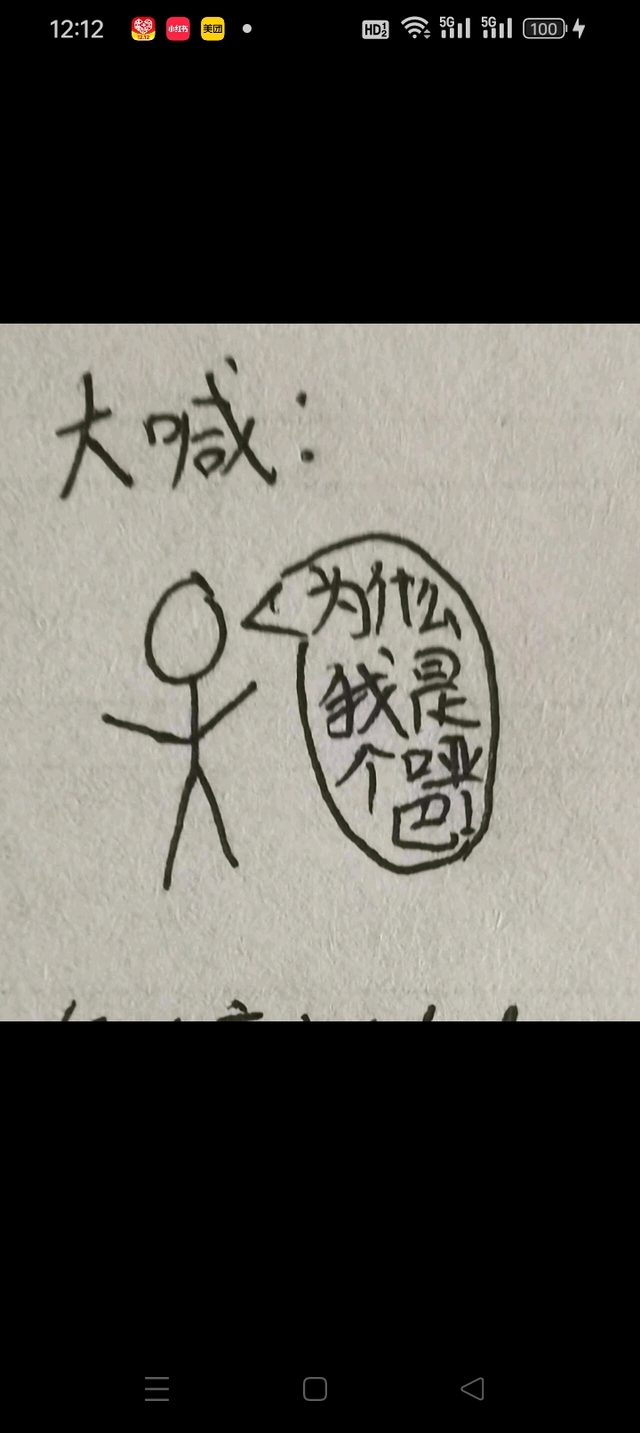 12:12
12.12
小红书
美团
HD 1 2
5G
5G
100
大喊：
为什么
我是
个哑
巴！